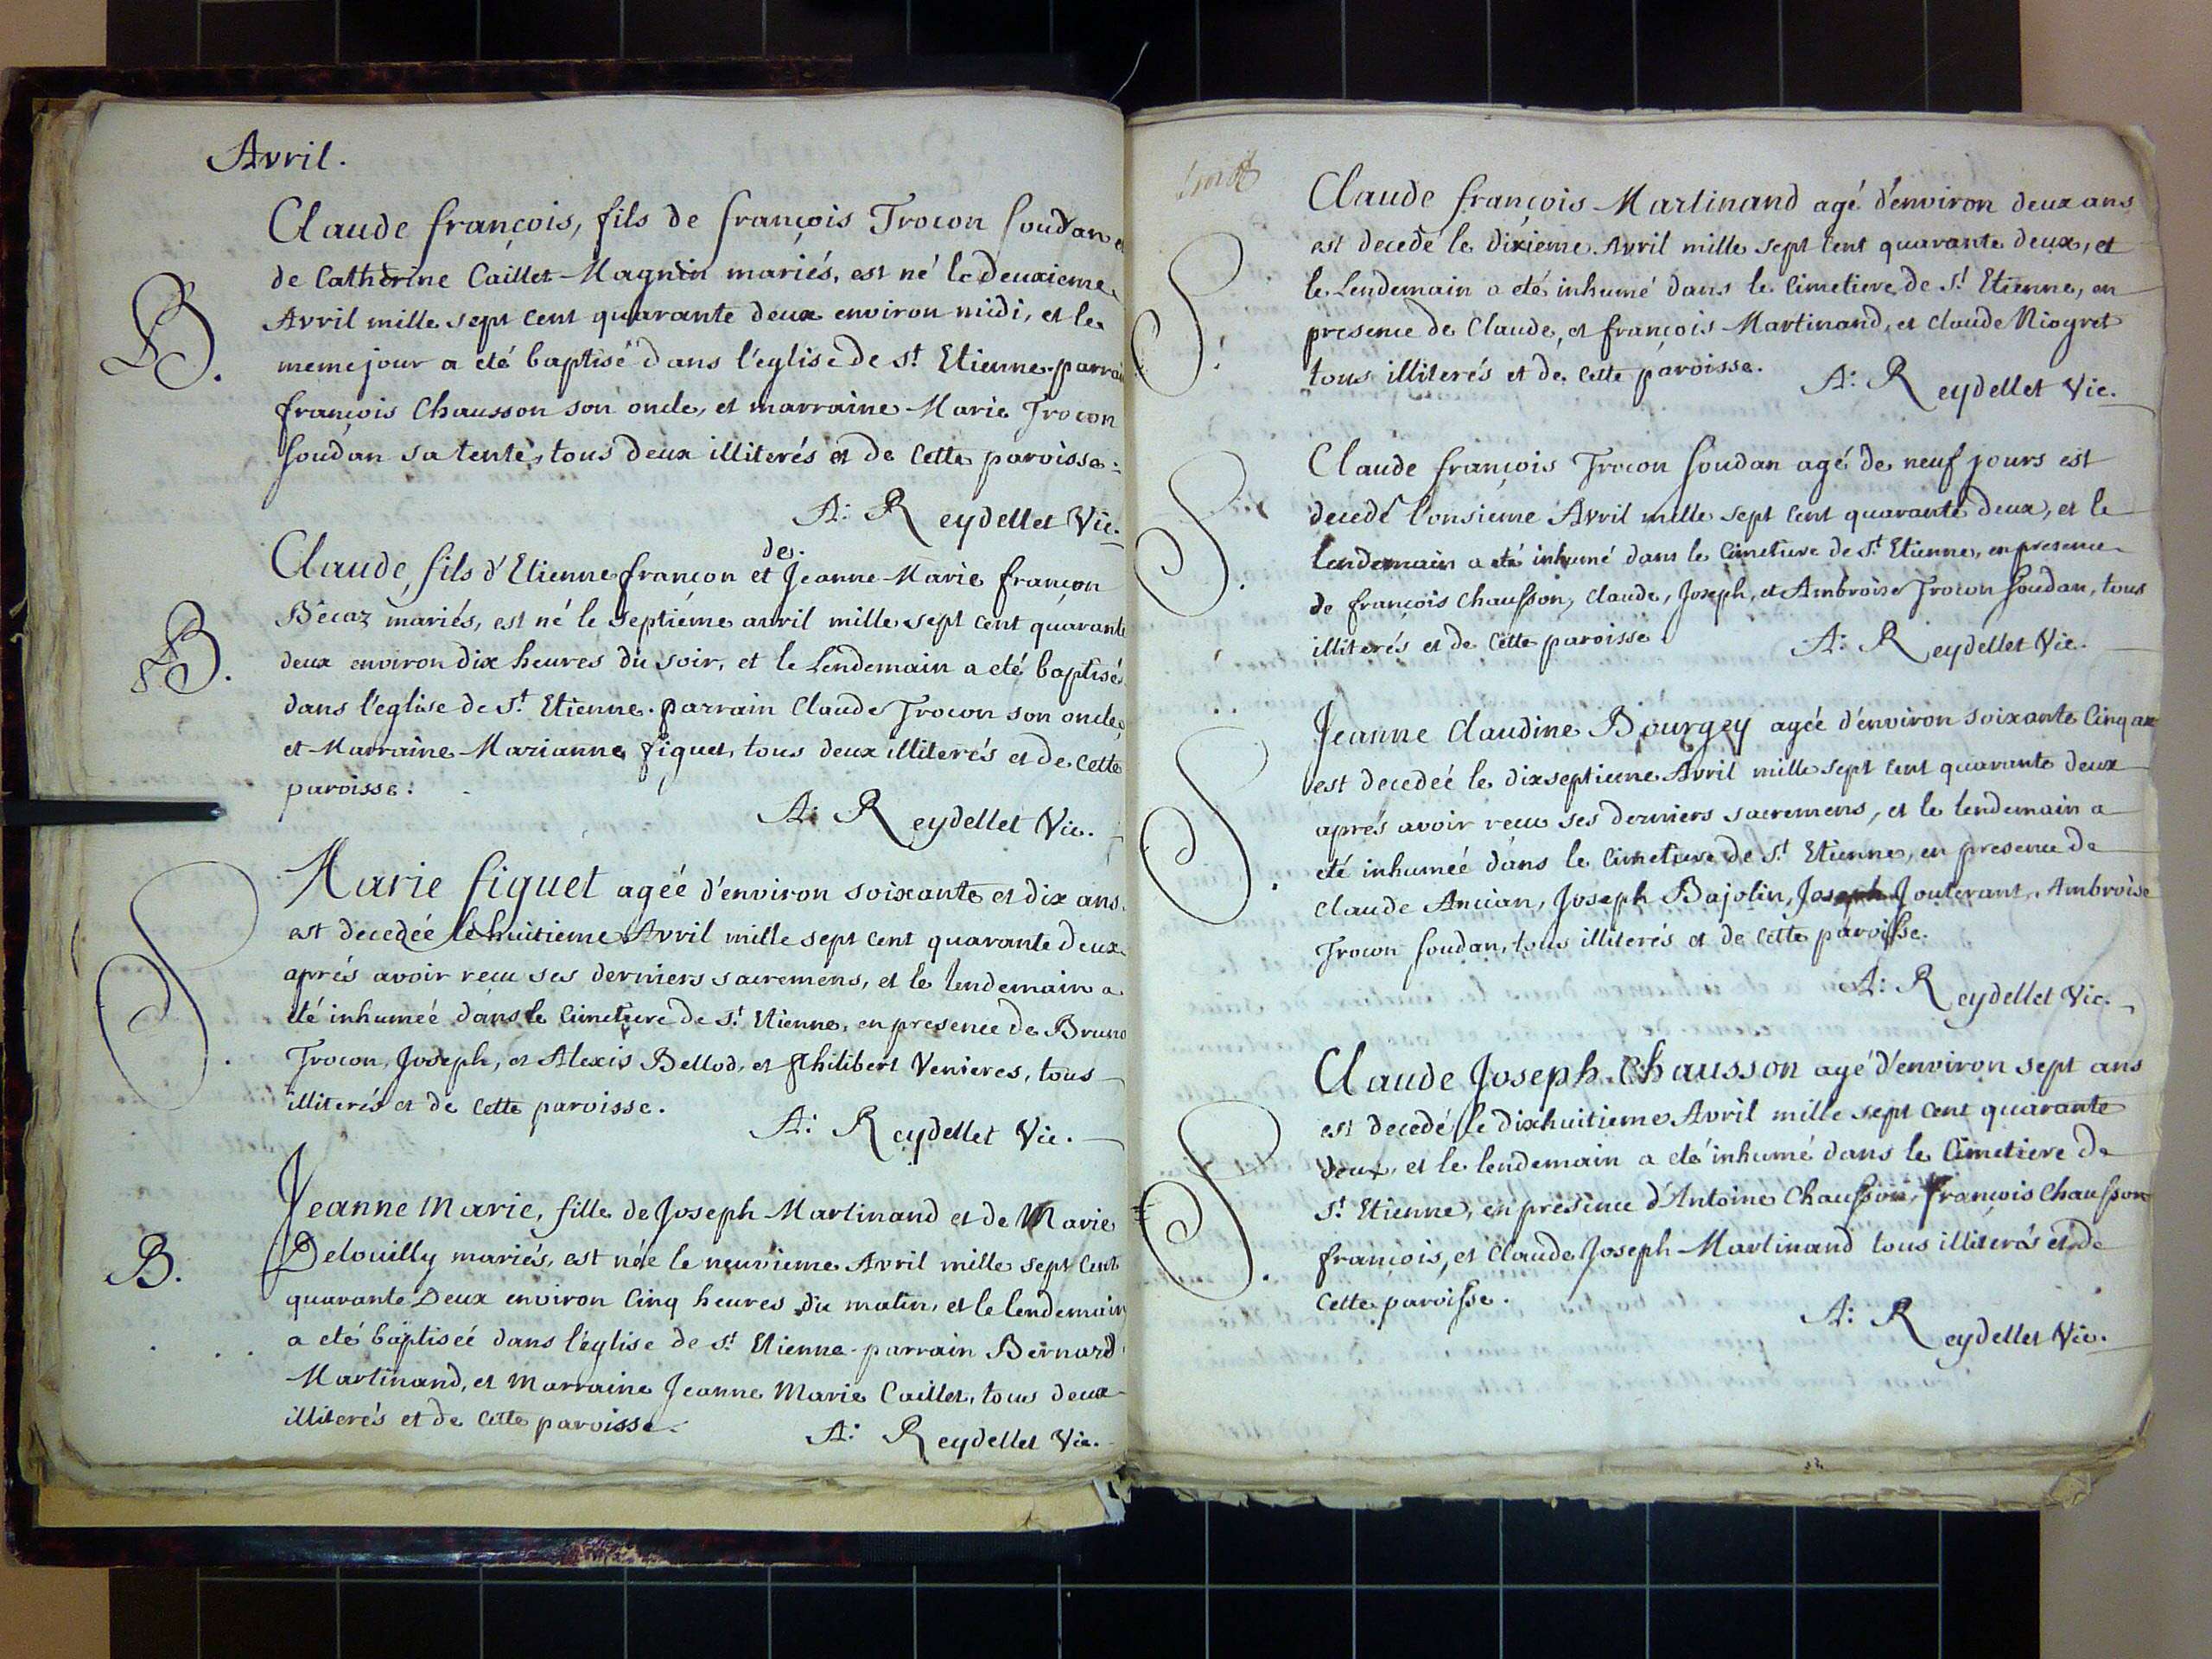 Avril.
Claude françois, fils de françois Trocon soudan et
de Catherine Caillet-Magnin mariés, est né le deuxieme
Avril mille sept cent quarante deux environ midi, et le
meme jour a eté baptisé dans l'eglise de St Etienne. parrain
B.
françois Chausson son oncle, et marraine Marie Trocon
soudan sa tente, tous deux illiterés et de cette paroisse.
A: Reydellet Vic.
de
Claude, fils d'Etienne françon et Jeanne-Marie françon
Bécaz mariés, est né le septiéme avril mille sept cent quarante
B.
deux environ dix heures du soir, et le Lendemain a eté baptisé
dans l'eglise de St Etienne. parrain Claude Trocon son oncle,
et Marraine Marianne figuet, tous deux illiterés et de cette
paroisse:
A: Reydellet Vic.
Marie figuet ageé d'environ soixante et dix ans
est decedeé le huitieme Avril mille sept cent quarante deux
aprés avoir reçu ses derniers sacremens, et le lendemain a
S.
eté inhumeé dans le Cimetiere de St Etienne, en presence de Bruno
Trocon, Joseph, et Alexis Bellod, et philibert Venieres, tous
illiterés et de cette paroisse.
A: Reydellet Vic.
Jeanne Marie, fille de Joseph Martinand et de Marie
B.
Delouilly mariés, est née le neuvieme Avril mille sept cent
quarante Deux environ Cinq heures du matin, et le lendemain
a eté baptiseé dans l'église de St Etienne. parrain Bernard
Martinand, et Marraine Jeanne Marie Caillet, tous deux
illiterés et de cette paroisse.
A: Reydellet Vic.
Claude françois Martinand agé d'environ deux ans
est decedé le dixieme Avril mille sept cent quarante deux, et
le Lendemain a eté inhumé dans le Cimetiere de St Etienne, en
S.
presence de Claude, et françois Martinand, et Claude Niogret
tous illiterés et de cette paroisse.
A: Reydellet Vic.
Claude françois Trocon soudan agé de neuf jours est
decedé l'onsieme Avril mille sept cent quarante deux, et le
lendemain a eté inhumé dans le Cimetiere de St Etienne, en presence
S.
de françois Chausson, Claude, Joseph, et Ambroise Trocon soudan, tous
illiterés et de cette paroisse.
A: Reydellet Vic.
Jeanne Claudine Bourgey agée d'environ soixante Cinq ans
est decedeé le dixseptieme Avril mille sept cent quarante deux
aprés avoir reçu ses derniers sacremens, et le lendemain a
S.
eté inhumeé dans le Cimetiere de St Etienne, en presence de
Claude Ancian, Joseph Bajolin, Joseph Jouterant, Ambroise
Trocon soudan, tous illiterés et de cette paroisse.
A: Reydellet Vic.
Claude Joseph Chausson agé d'environ sept ans
est decedé le dixhuitieme Avril mille sept cent quarante
deux, et le lendemain a eté inhumé dans le Cimetiere de
S.
St Etienne, en presence d'Antoine Chausson, françois Chausson
françois, et Claude Joseph Martinand tous illiterés et de
cette paroisse.
A: Reydellet Vic.